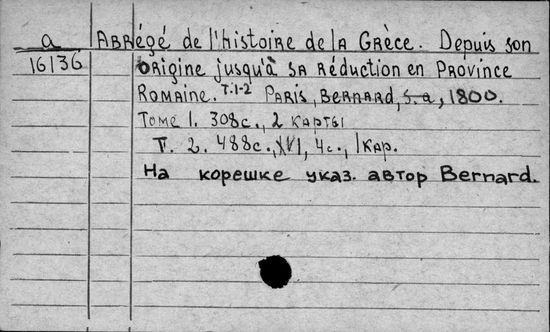 a ABRégé de l'histoire de la Grèce. Depuis son
16136 origine jusqu'à sa réduction en Province
Romaine. T.1-2 Paris, Bernard, s.a, 1800.
Tome 1. 308c., 2 карты
T. 2. 488c., XVI, 4c., 1 кар.
На корешке указ. автор Bernard.